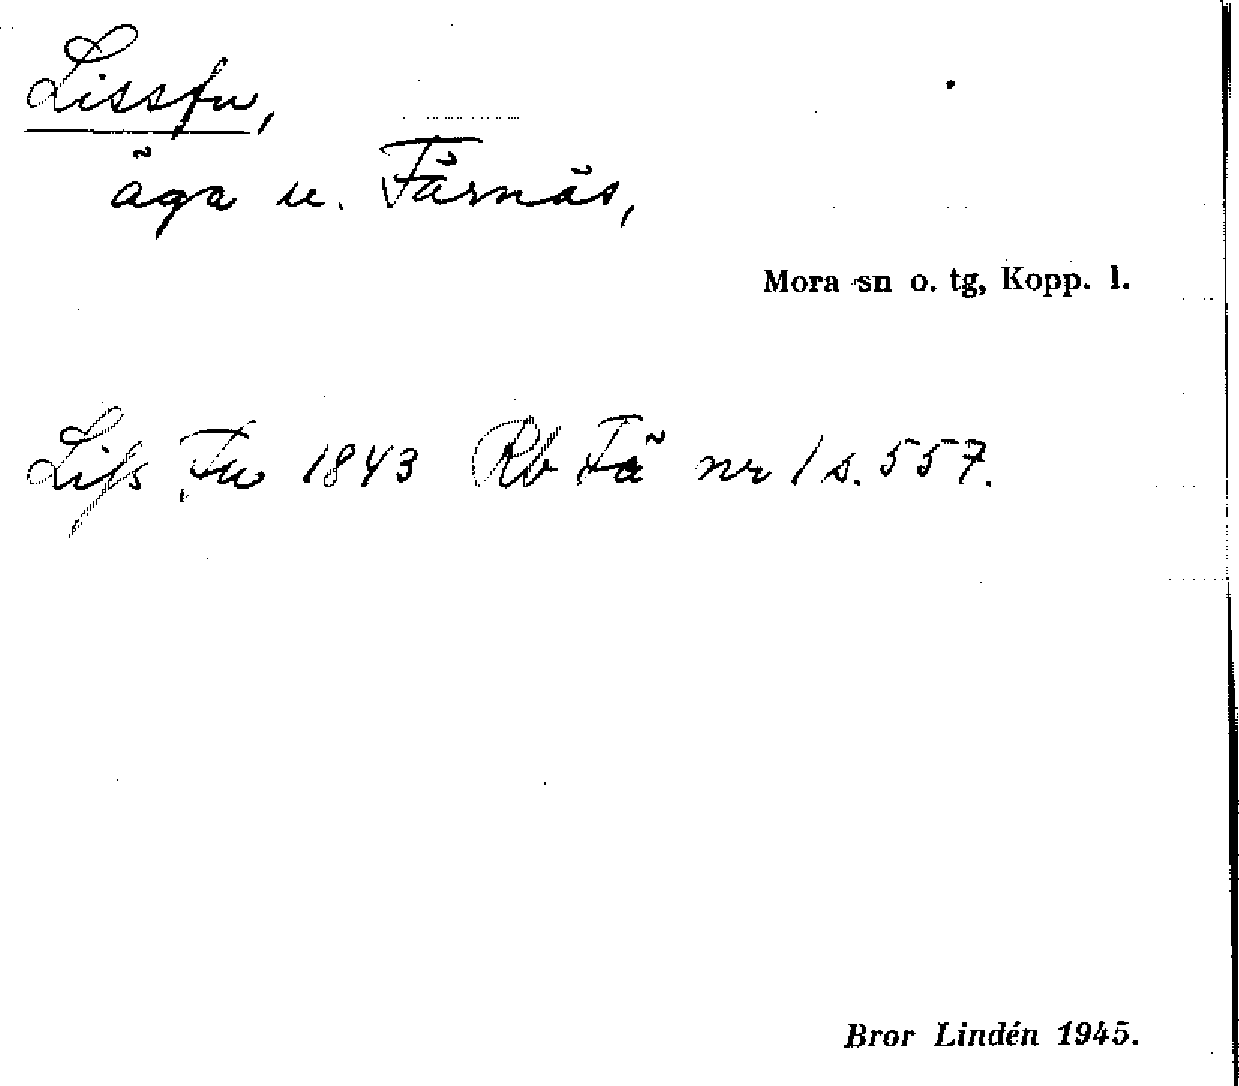 Lissfu,
äga u. Färnäs,
Mora sn o. tg, Kopp. l.
Liss Fu 1843 Rb Fä nr 1 s. 557.
Bror Lindén 1945.